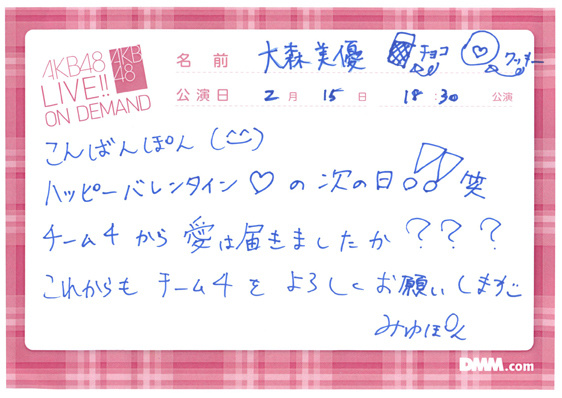 AKB48
LIVE!!
ON DEMAND
AKB
48
名前 大森美優 チョコ クッキー
公演日 2月 15日 18:30 公演
こんばんぽん (^^)
ハッピーバレンタイン♡の次の日!! 笑
チーム4から愛は届きましたか???
これからもチーム4をよろしくお願いします
みゆぽん
DMM.com